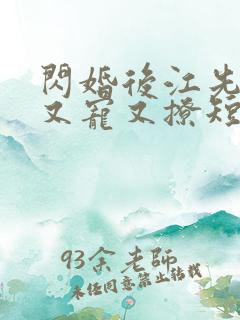 閃婚後江先
又寵又撩短
93余老師
未經同意禁止轉載